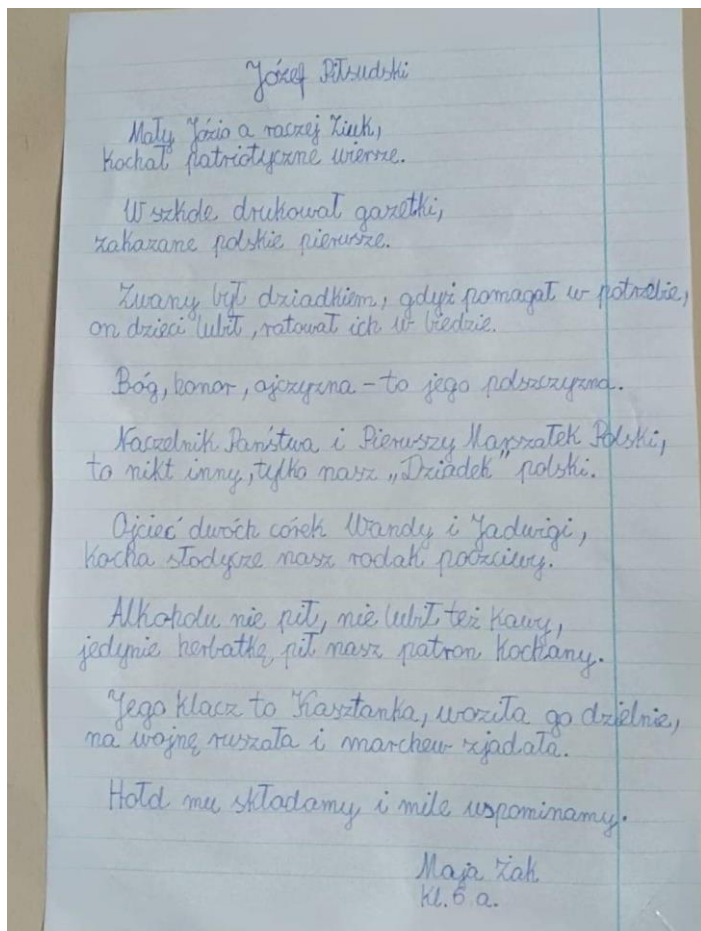 Józef Piłsudski
Mały Józio a raczej Ziuk,
kochał patriotyczne wiersze.
W szkole drukował gazetki,
zakazane polskie pierwsze.
Zwany był dziadkiem, gdyż pomagał w potrzebie,
on dzieci lubił, ratował ich w biedzie.
Bóg, honor, ojczyzna - to jego polszczyzna.
Naczelnik Państwa i Pierwszy Marszałek Polski,
to nikt inny, tylko nasz „Dziadek” polski.
Ojcieć dwóch córek Wandy i Jadwigi,
kocha słodycze nasz rodak poczciwy.
Alkoholu nie pił, nie lubił też kawy,
jedynie herbatkę pił nasz patron kochany.
Jego klacz to Kasztanka, woziła go dzielnie,
na wojnę ruszała i marchew zjadała.
Hołd mu składamy i mile wspominamy.
Maja Żak
kl. 6 a.